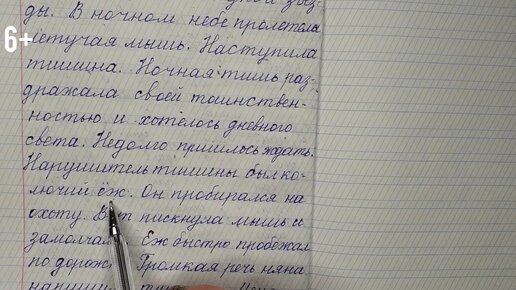 ды. В ночном небе пролетела
летучая мышь. Наступила
тишина. Ночная тишь раз-
дражала своей таинствен-
ностью и хотелось дневного
света. Недолго пришлось ждать.
Нарушитель тишины был ко-
лючий ёж. Он пробирался на
охоту. В т пискнула мышь и
замолчал Ёж быстро пробежал
по дорож Громкая речь няни
6+